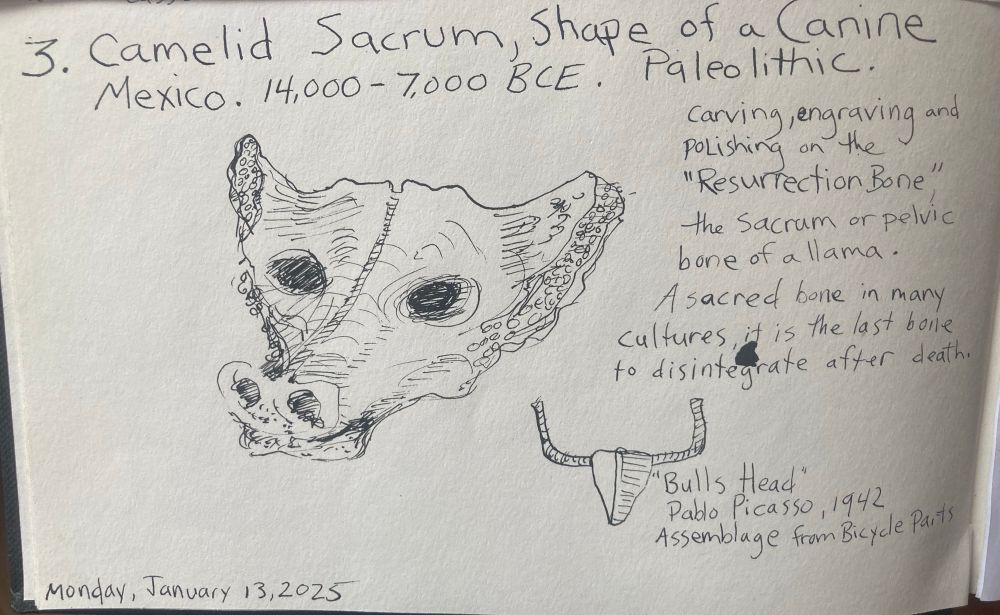 3. Camelid Sacrum, Shape of a Canine
Mexico. 14,000 - 7,000 BCE. Paleolithic.
Carving, engraving and
polishing on the
"Resurrection Bone",
the sacrum or pelvic
bone of a llama.
A sacred bone in many
cultures, it is the last bone
to disintegrate after death.
"Bulls Head"
Pablo Picasso, 1942
Assemblage from Bicycle Parts
Monday, January 13, 2025